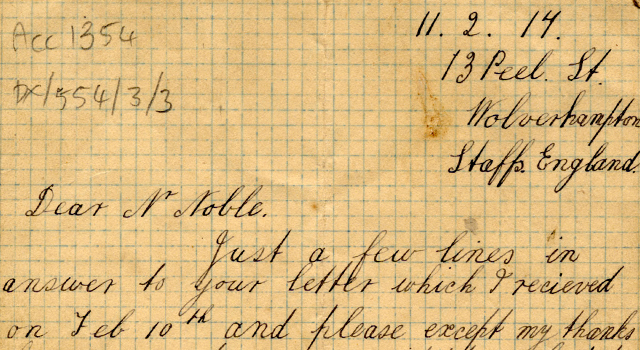 Acc 1354
DX/554/3/3
11. 2. 14.
13 Peel. St.
Wolverhampton
Staffs. England.
Dear Mr Noble.
Just a few lines in
answer to your letter which I recieved
on Feb 10th and please except my thanks